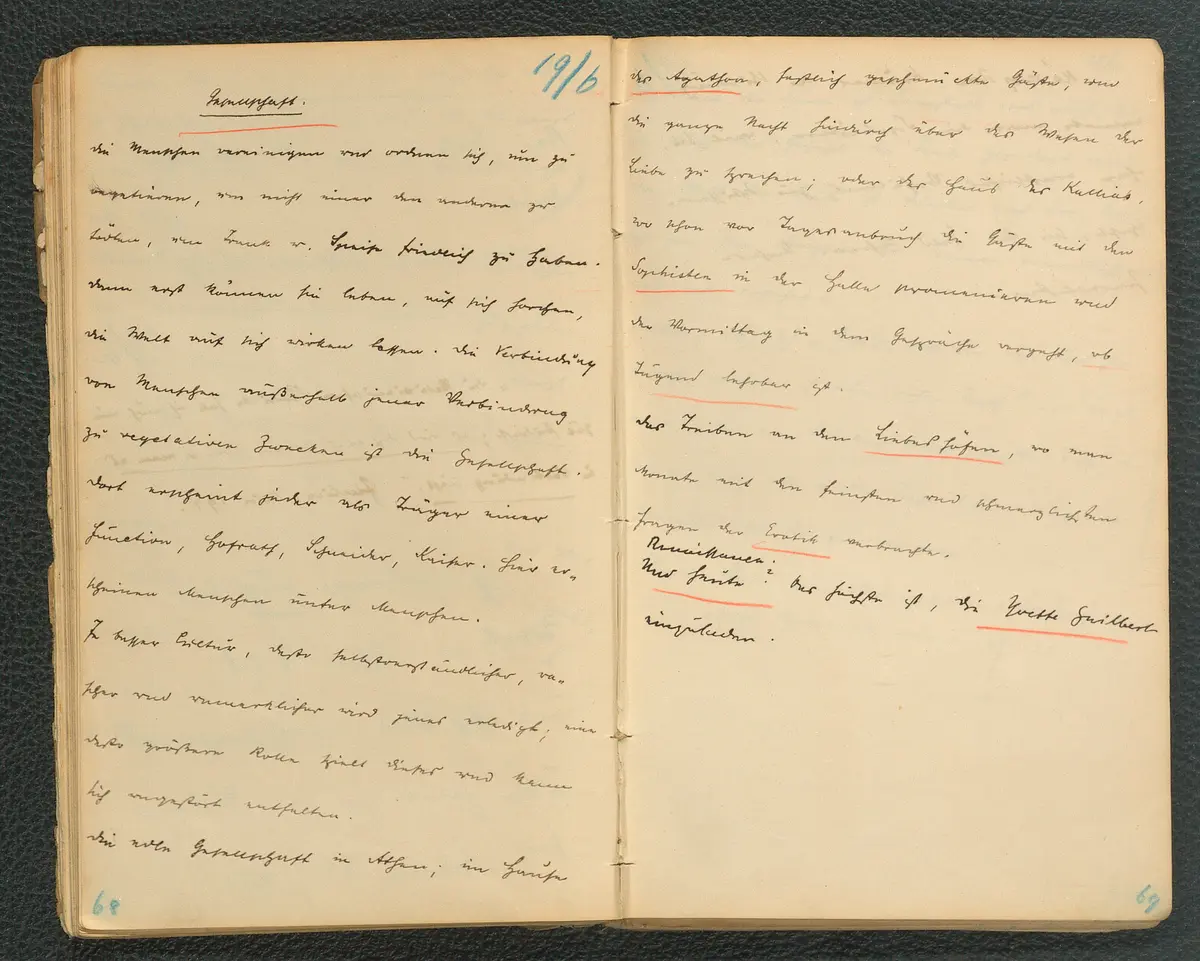 19/6
Gesellschaft.
die Menschen vereinigen und ordnen sich, um zu
vegetieren, um nicht einer den anderen zu
tödten, um Trank u. Speise friedlich zu haben.
dann erst können sie leben, auf sich horchen,
die Welt auf sich wirken lassen. die Verbindung
von Menschen außerhalb jener Verbindung
zu vegetativen Zwecken ist die Gesellschaft.
dort erscheint jeder als Träger einer
Function, Hofrath, Schneider, Kaiser. hier er-
scheinen Menschen unter Menschen.
Je besser Cultur, desto selbstverständlicher, ra-
scher und unmerklicher wird jenes erledigt; eine
desto größere Rolle spielt dieses und kann
sich ungestört entfalten.
die edle Gesellschaft in Athen; im Hause
68
des Agathon, festlich geschmückte Gäste, um
die ganze Nacht hindurch über das Wesen der
Liebe zu sprechen; oder das Haus des Kallias,
wo schon vor Tagesanbruch die Gäste mit den
Sophisten in der Halle promenieren und
der Vormittag in dem Gespräche vergeht, ob
Tugend lehrbar ist.
das Treiben an den Liebeshöfen, wo man
Monate mit den feinsten und schmerzlichsten
Fragen der Erotik verbrachte.
Renaissance.
Und heute? das höchste ist, die Yvette Guilbert
einzuladen.
69